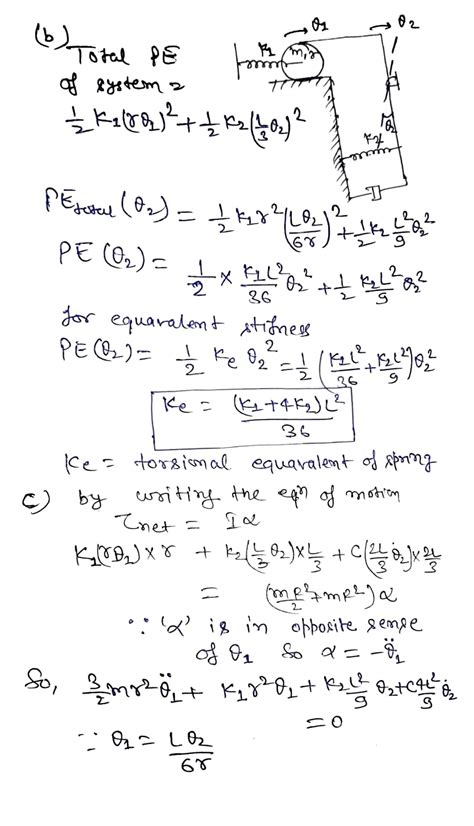 (b)
Total PE
of system =
1/2 K1(rθ1)² + 1/2 K2(1/3 θ2)²
K1
m,r
θ1
θ2
θ2
K2
PEtotal(θ2) = 1/2 K1r²(Lθ2/6r)² + 1/2 K2 L²/9 θ2²
PE(θ2) = 1/2 × K1L²/36 θ2² + 1/2 K2L²/9 θ2²
for equavalent stifness
PE(θ2) = 1/2 Ke θ2² = 1/2 (K1L²/36 + K2L²/9)θ2²
Ke = (K1+4K2)L²/36
Ke = torsional equavalent of spring
c) by writing the eqn of motion
τnet = Iα
K1(rθ1)×r + K2(L/3 θ2)×L/3 + C(2L/3 θ̇2)×2L/3
= (mR²/2 + mR²)α
∵ 'α' is in opposite sense
of θ1 So α = -θ̈1
So, 3/2 mr²θ̈1 + K1r²θ1 + K2L²/9 θ2 + C4L²/9 θ̇2
= 0
∵ θ1 = Lθ2/6r